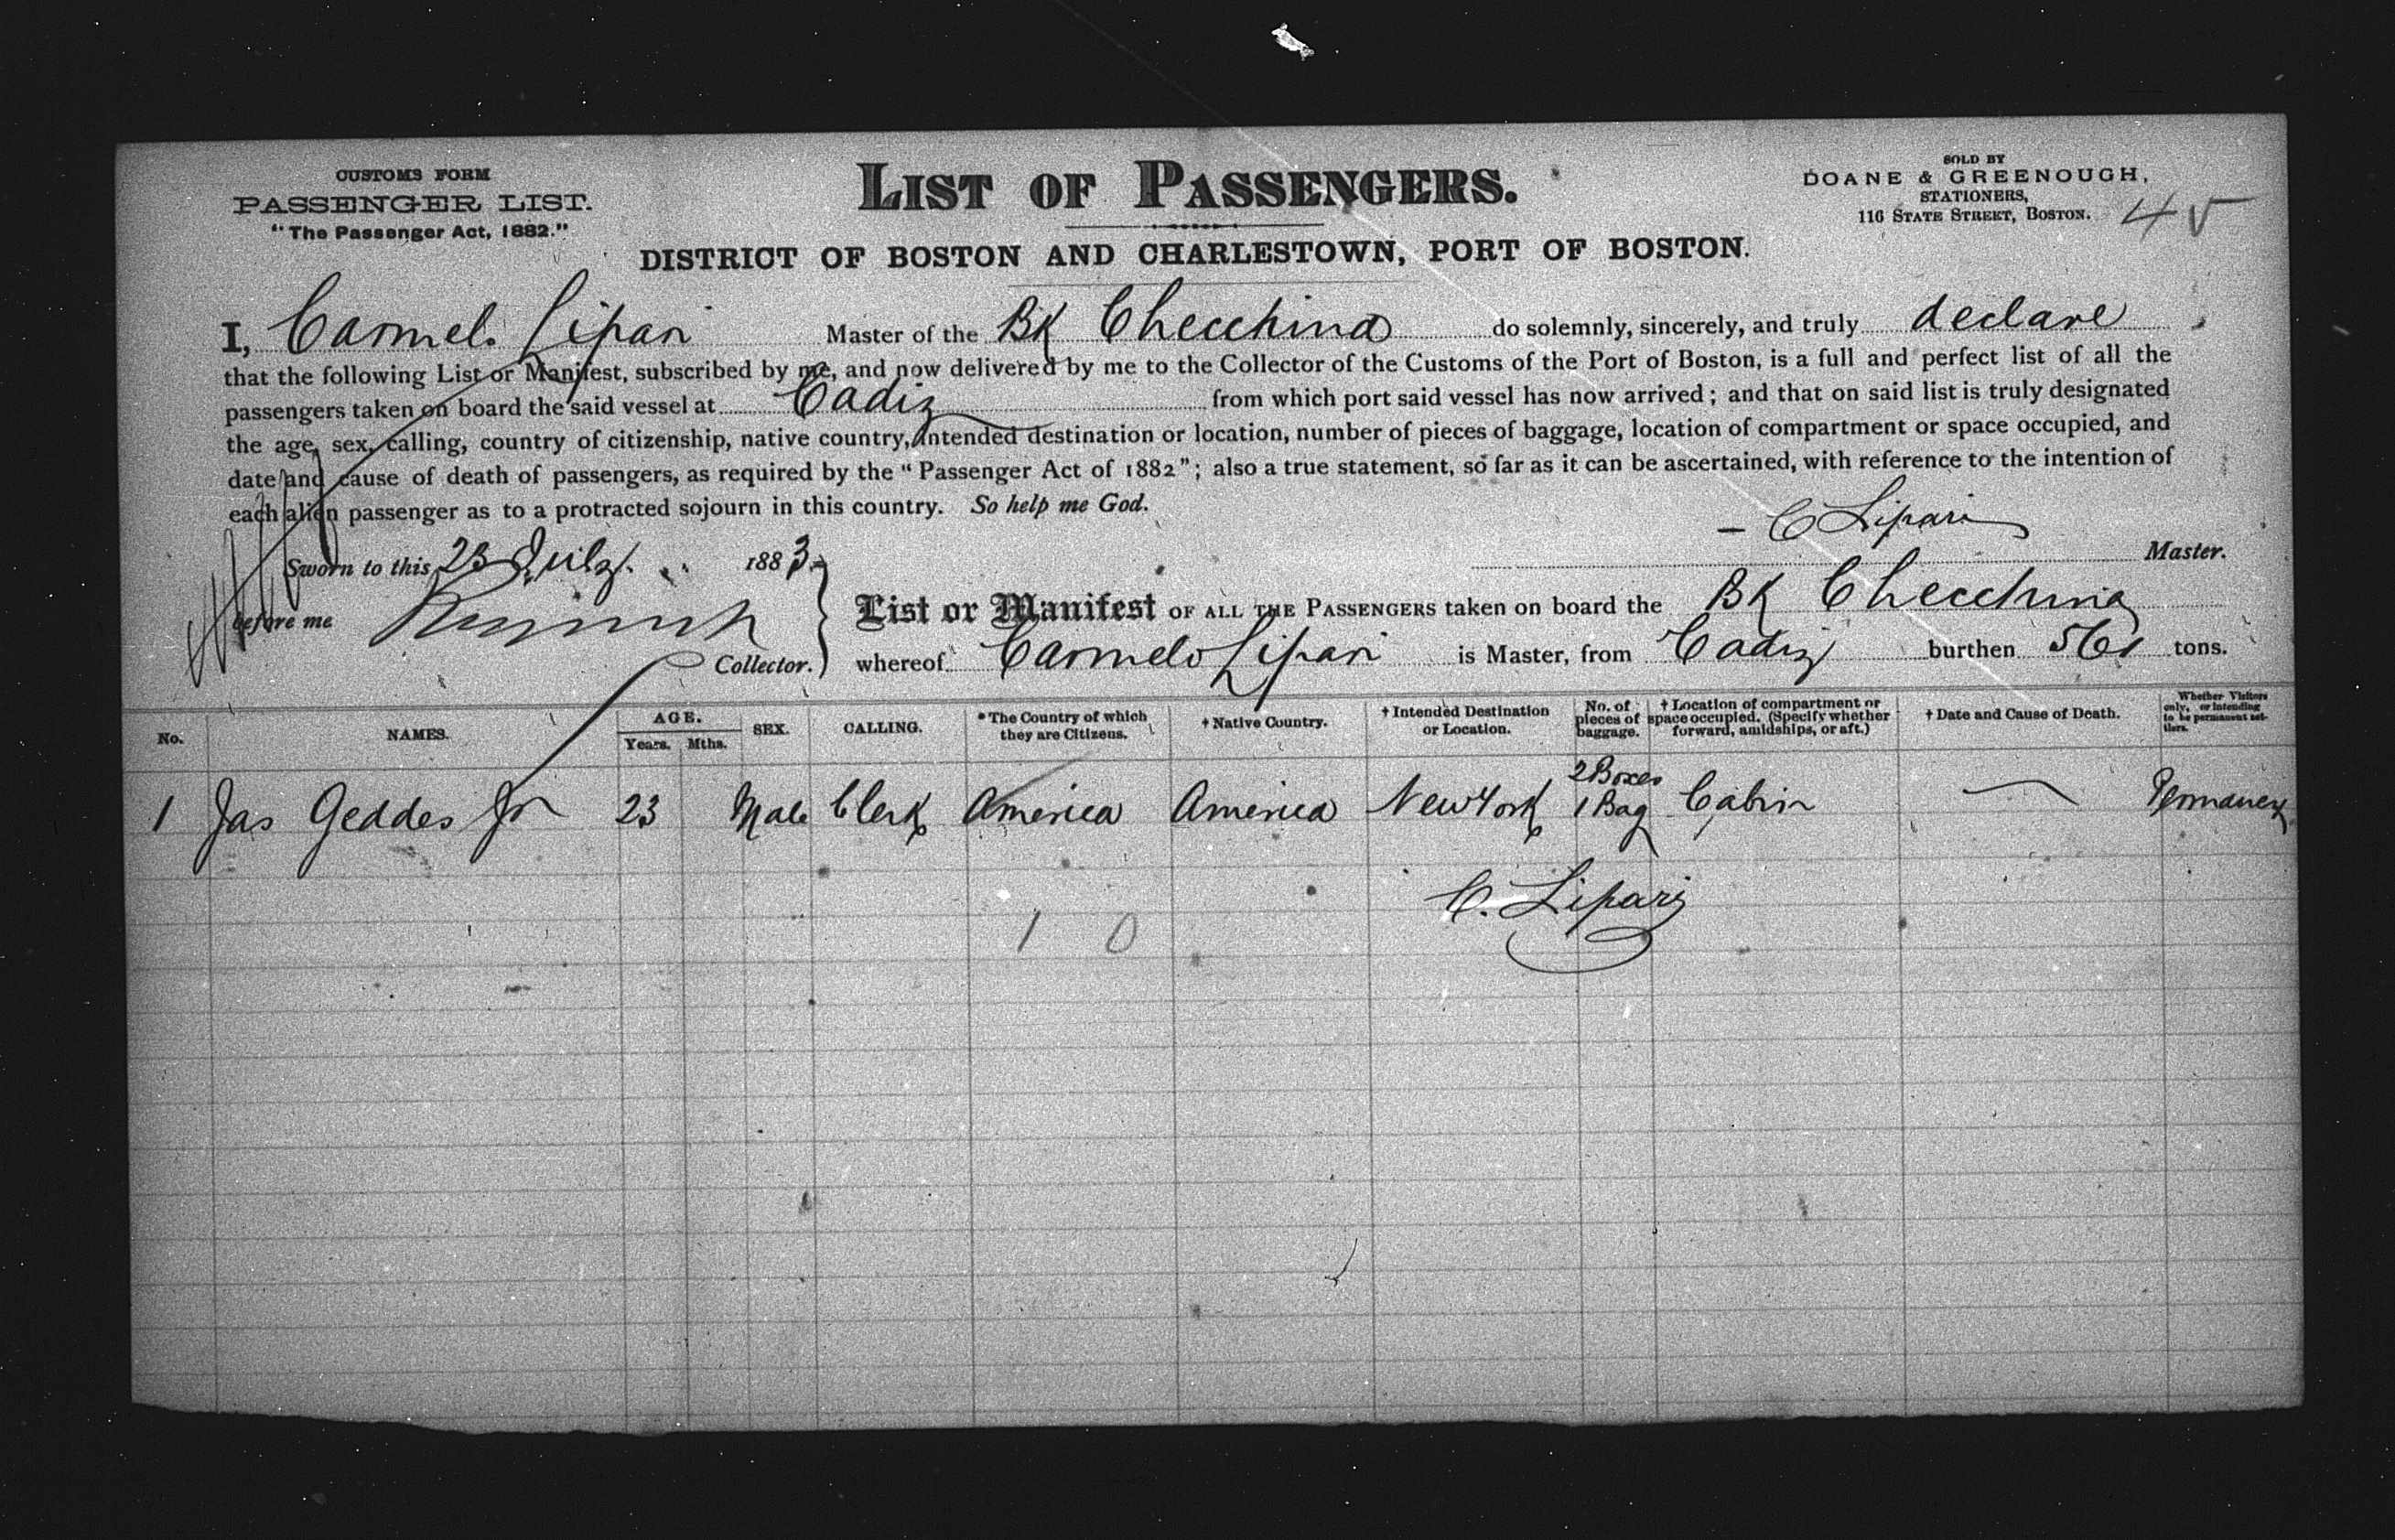 CUSTOMS FORM
PASSENGER LIST.
"The Passenger Act, 1882."
LIST OF PASSENGERS.
SOLD BY
DOANE & GREENOUGH,
STATIONERS,
116 STATE STREET, BOSTON.
45
DISTRICT OF BOSTON AND CHARLESTOWN, PORT OF BOSTON.
I, Carmelo Lipari Master of the Bk Checchina do solemnly, sincerely, and truly declare
that the following List or Manifest, subscribed by me, and now delivered by me to the Collector of the Customs of the Port of Boston, is a full and perfect list of all the
passengers taken on board the said vessel at Cadiz from which port said vessel has now arrived; and that on said list is truly designated
the age, sex, calling, country of citizenship, native country, intended destination or location, number of pieces of baggage, location of compartment or space occupied, and
date and cause of death of passengers, as required by the "Passenger Act of 1882"; also a true statement, so far as it can be ascertained, with reference to the intention of
each alien passenger as to a protracted sojourn in this country. So help me God.
C Lipari
Master.
Sworn to this 23 July 1883
before me
Collector.
List or Manifest OF ALL THE PASSENGERS taken on board the Bk Checchina
whereof Carmelo Lipari is Master, from Cadiz burthen 561 tons.
No. NAMES. AGE. Years. Mths. SEX. CALLING. * The Country of which they are Citizens. † Native Country. † Intended Destination or Location. No. of pieces of baggage. † Location of compartment or space occupied. (Specify whether forward, amidships, or aft.) † Date and Cause of Death. Whether Visitors only, or intending to be permanent settlers.
1 Jas Geddes Jr 23 Male Clerk America America New York 2 Boxes 1 Bag Cabin — Permanent
C. Lipari
1 0